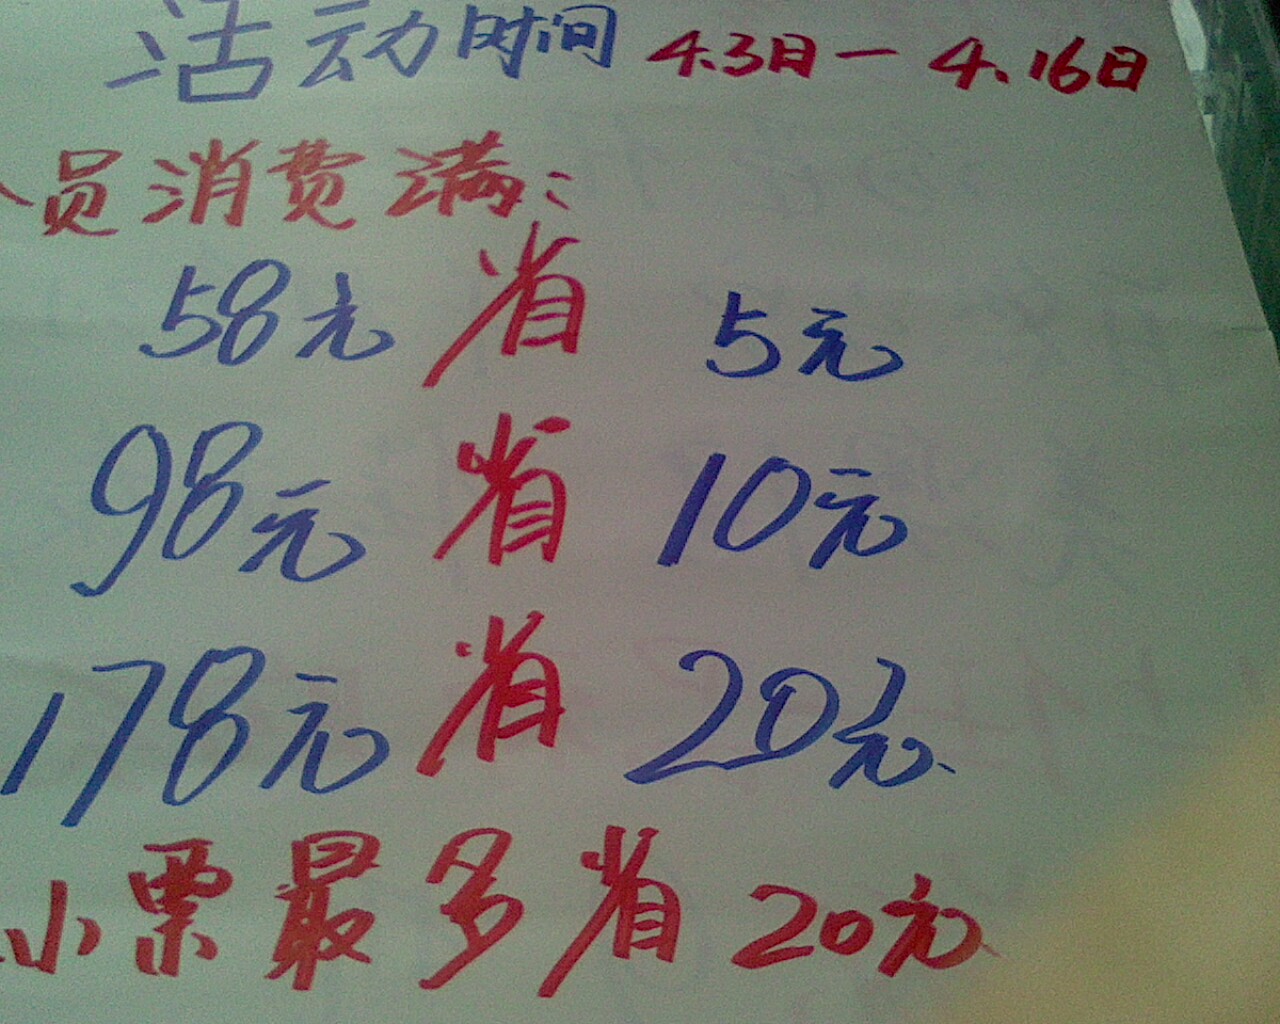 活动时间 4.3日一4.16日
员消费满:
58元省 5元
98元省10元
178元省20元
小票最多省20元